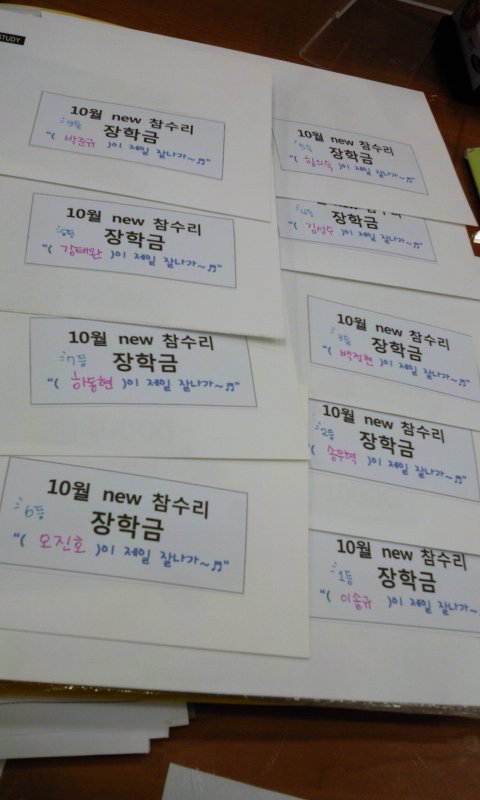 STUDY
10월 new 참수리
:9등 장학금
"( 박준규 )이 제일 잘나가~♬"
10월 new 참수리
:8등 장학금
"( 강태완 )이 제일 잘나가~♬"
10월 new 참수리
:7등 장학금
"( 하동현 )이 제일 잘나가~♬"
10월 new 참수리
:6등 장학금
"( 오진호 )이 제일 잘나가~♬"
10월 new 참수리
:5등 장학금
"( 함의숙 )이 제일 잘나가~♬"
:4등 장학금
"( 김성수 )이 제일 잘나가~♬"
10월 new 참수리
:3등 장학금
"( 백정현 )이 제일 잘나가~♬"
10월 new 참수리
:2등 장학금
( 송두혁 )이 제일 잘나가~♬"
10월 new 참수리
:1등 장학금
"( 이송규 )이 제일 잘나가~